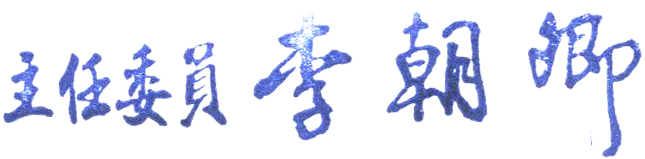 主任委員 李朝卿